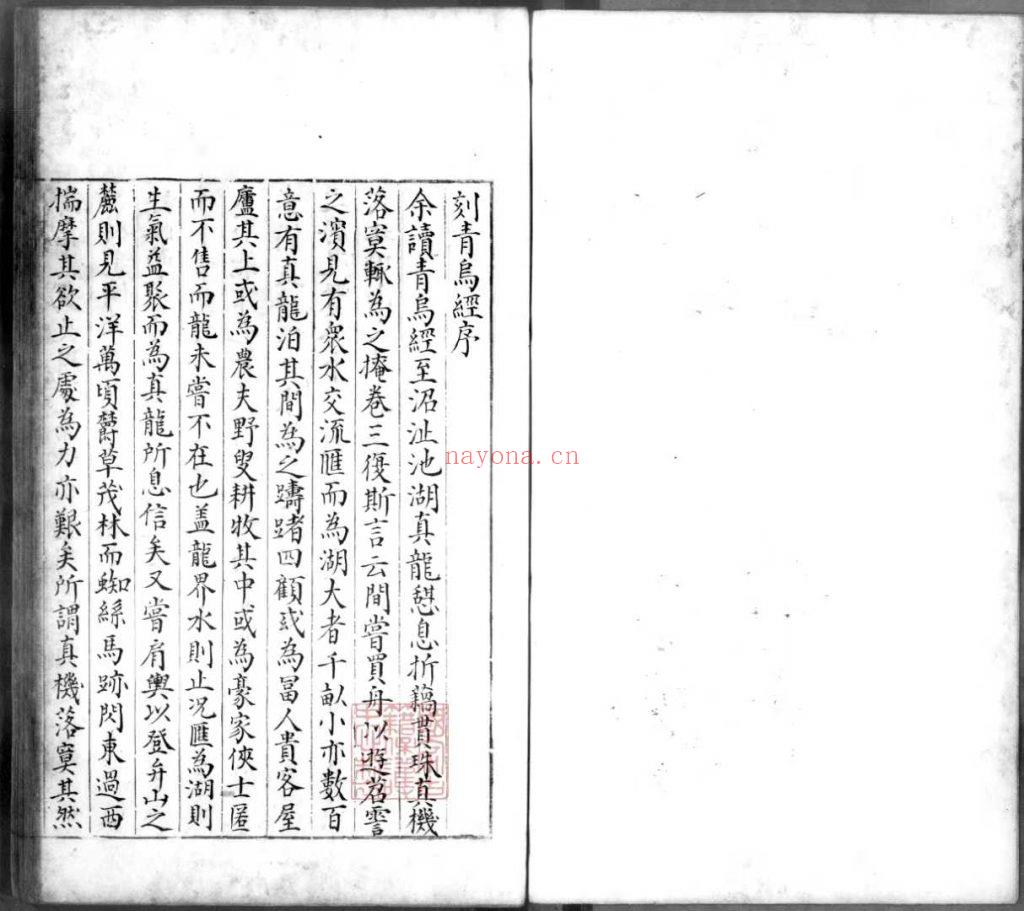 刻青烏經序
余讀青烏經至沼沚池湖真龍憇息折藕貫珠真機
落寞輒為之掩卷三復斯言云間嘗買舟以遊苕霅
之濱見有衆水交流匯而為湖大者千畝小亦數百
意有真龍泊其間為之躊躇四顧或為冨人貴客屋
廬其上或為農夫野叟耕牧其中或為豪家俠士匿
而不售而龍未嘗不在也盖龍界水則止况匯為湖則
生氣益聚而為真龍所息信矣又嘗肩輿以登弁山之
麓則見平洋萬頃欝草茂林而蜘絲馬跡閃東過西
揣摩其欲止之處為力亦艱矣所謂真機落寞其然
nayona.cn